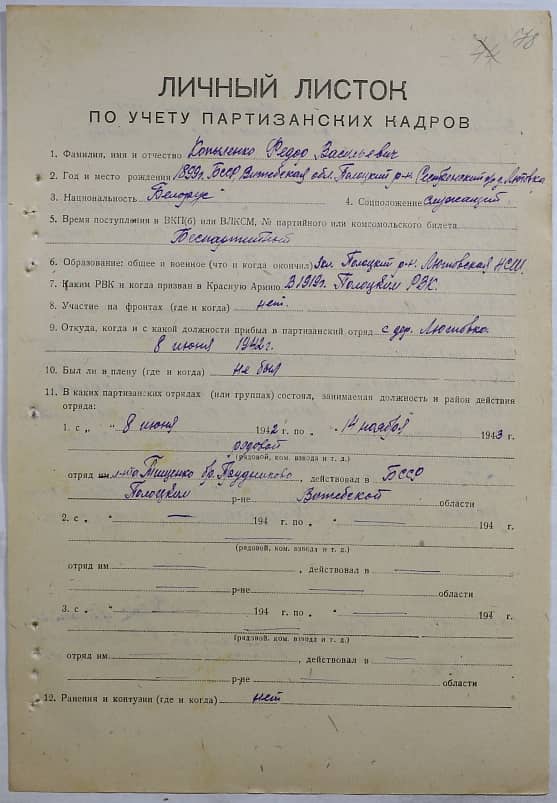 78
ЛИЧНЫЙ ЛИСТОК
ПО УЧЕТУ ПАРТИЗАНСКИХ КАДРОВ
1. Фамилия, имя и отчество Копыленко Федор Васильевич
2. Год и место рождения 1899г. БССР, Витебская обл. Полоцкий р-н. д. Лютовка
3. Национальность Белорус 4. Соцположение служащий
5. Время поступления в ВКП(б) или ВЛКСМ, № партийного или комсомольского билета
Беспартийный
6. Образование: общее и военное (что и когда окончил) Полоцкий р-н. Лютовская НСШ.
7. Каким РВК и когда призван в Красную Армию В 1919г. Полоцким РВК.
8. Участие на фронтах (где и когда) нет.
9. Откуда, когда и с какой должности прибыл в партизанский отряд с дер. Лютовка.
8 июня 1942г.
10. Был ли в плену (где и когда) не был
11. В каких партизанских отрядах (или группах) состоял, занимаемая должность и район действия
отряда:
1. с „ 8 июня 1942 г. по „ 14 ноября 1943 г.
рядовой
(рядовой, ком. взвода и т. д.)
отряд им. Тищенко бр. Прудникова, действовал в БССР
Полоцким р-не Витебской области
2. с „ " 194 г. по „ " 194 г.
(рядовой, ком. взвода и т. д.)
отряд им , действовал в
р-не области
3. с „ " 194 г. по „ " 194 г.
(рядовой, ком. взвода и т. д.)
отряд им , действовал в
р-не области
12. Ранения и контузии (где и когда) нет